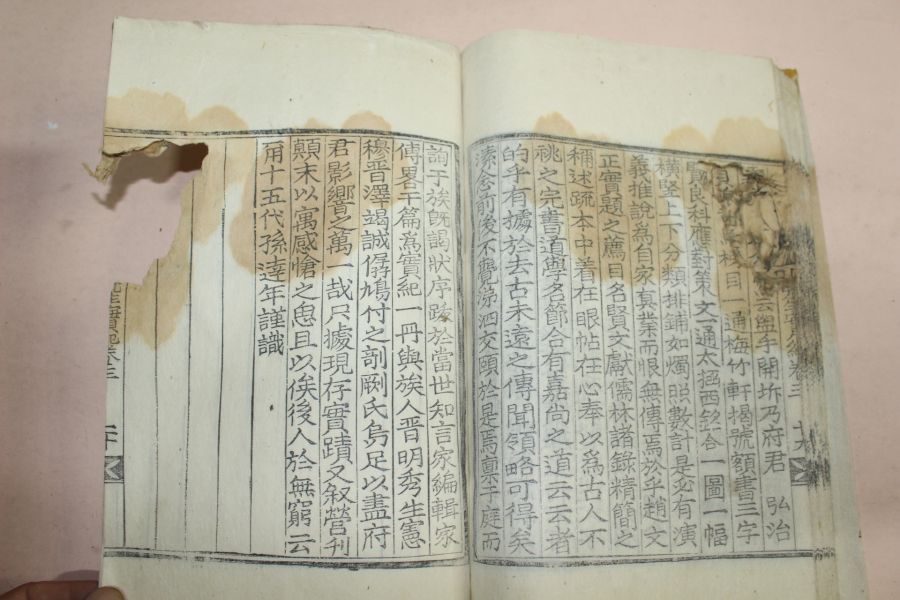 云盥手開坼乃府君 弘治
目一通梅竹軒揭號額書三字
賢良科應對策文通太極西銘合一圖一幅
橫竪上下分類排鋪如燭照數計是必有演
義推說爲自家眞業而恨無傳焉於乎趙文
正實題之薦目名賢文獻儒林諸錄精簡之
稱述疏本中着在眼帖在心奉以爲古人不
祧之完書道學名節合有嘉尚之道云云者
的乎有據於去古未遠之傳聞領略可得矣
溱念前後不覺涕泗交頤於是焉禀于庭而
詢于族旣謁狀序跋於當世知言家編輯家
傳畧干篇爲實紀一冊與族人晋明秀生憲
穆晋澤竭誠僝鳩付之剞劂氏烏足以盡府
君影響之萬一哉只據現存實蹟又叙營刊
顚末以寓感愴之思且以俟後人於無窮云
甭十五代孫逵年謹識
實紀卷之二
二十